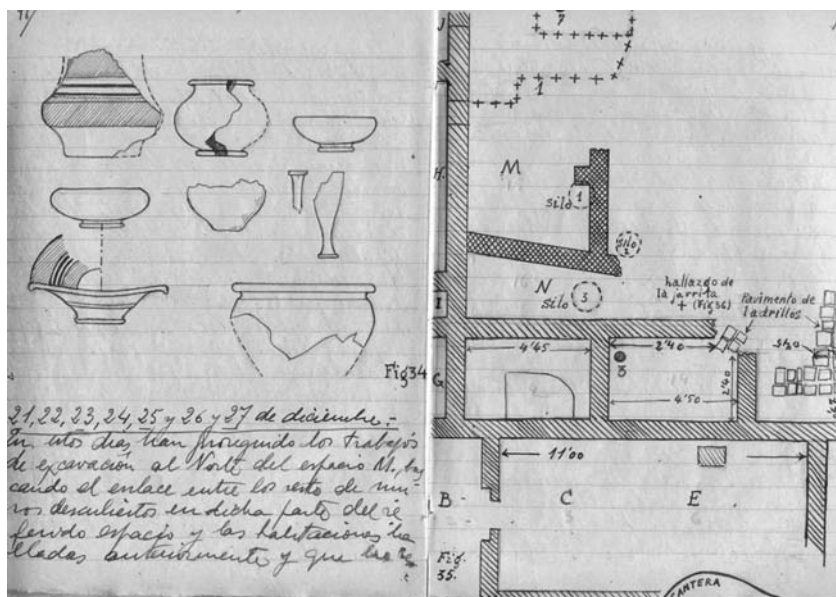 Fig 34
21, 22, 23, 24, 25 y 26 y 27 de diciembre.-
En estos dias han proseguido los trabajos
de excavación al Norte del espacio M, bus
cando el enlace entre los resto de mu-
ros descubiertos en dicha parte del re
ferido espacio y las habitaciones ha
lladas anteriormente y que las
J
7
1
H.
M
silo
1
silo
2
N
silo
3
hallazgo de
la jarrita
+ (Fig 36)
Pavimento de
ladrillos
silo
I
G
4'45
2'40
3
2'40
4'50
11'00
B
C
E
Fig.
35.
CANTERA